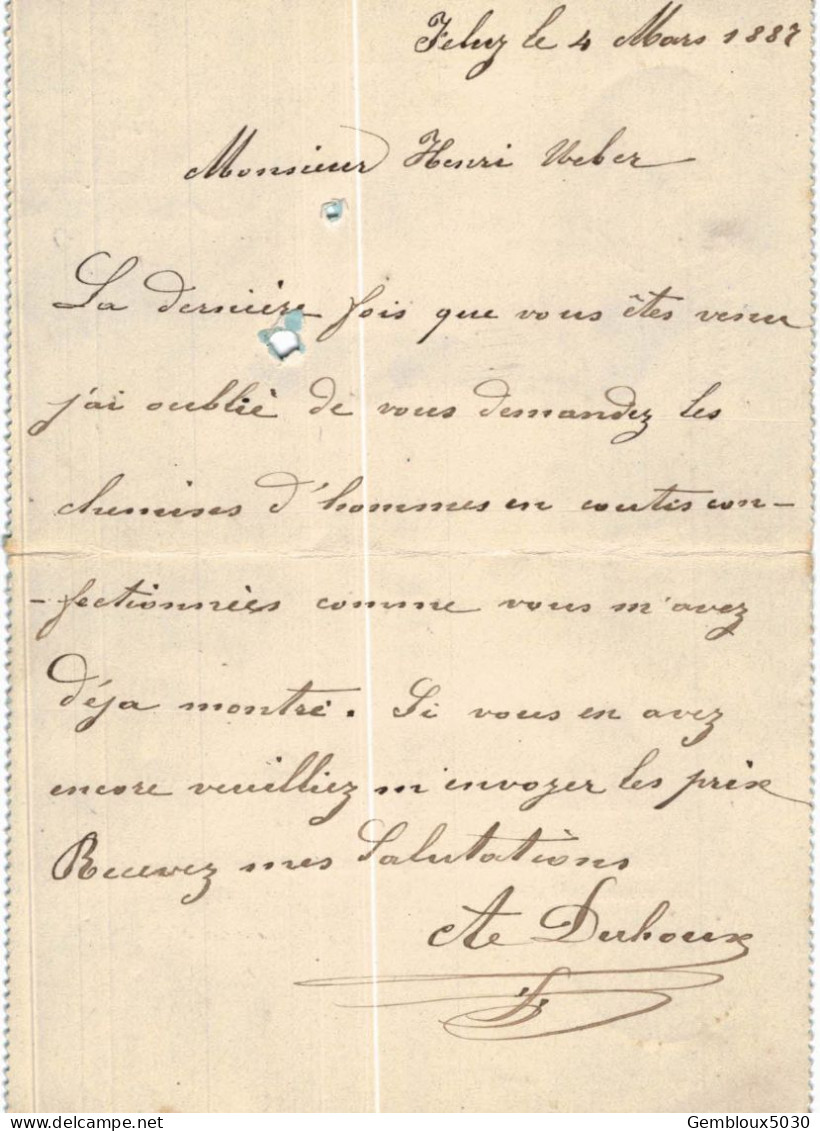 Feluy le 4 Mars 1887
Monsieur Henri Weber
La dernière fois que vous êtes venu
j'ai oublié de vous demandez les
chemises d'hommes en coutis con-
-fectionniès comme vous m'avez
déja montré. Si vous en avez
encore veuilliez m'envoyer les prix
Recevez mes Salutations
Gembloux5030